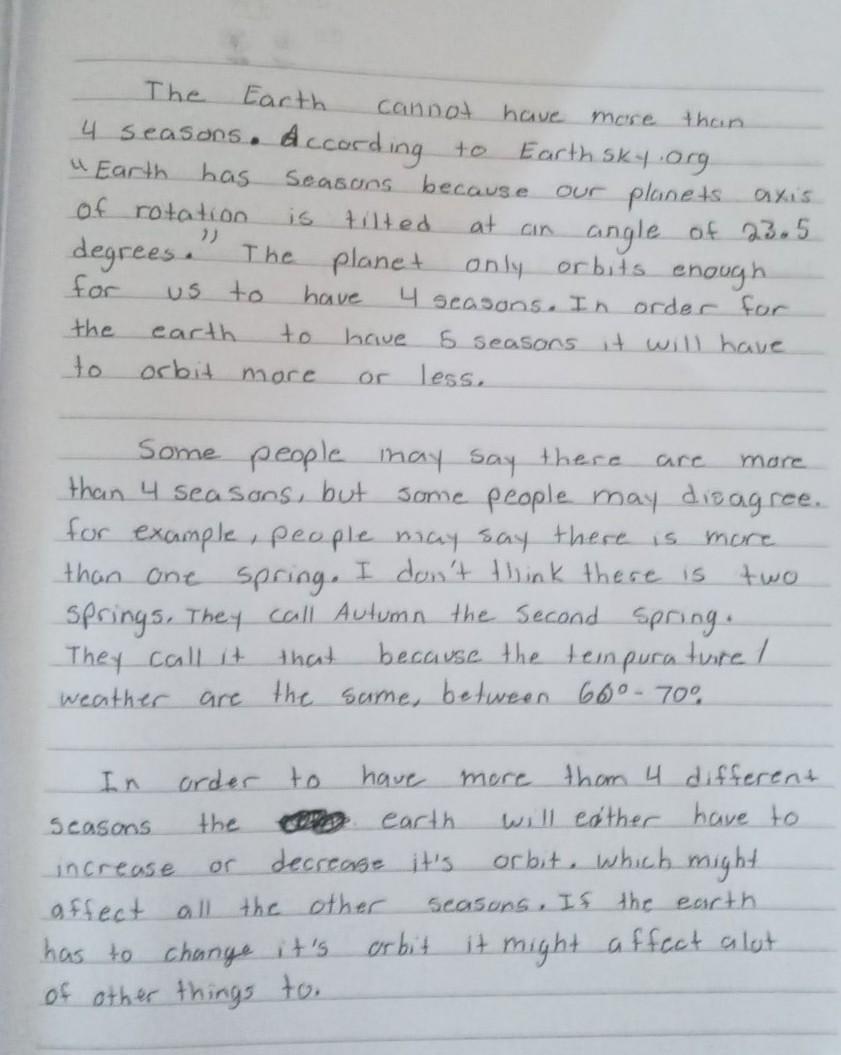 The Earth cannot have more than
4 seasons. According to Earthsky.org
"Earth has seasons because our planets axis
of rotation is tilted at an angle of 23.5
degrees." The planet only orbits enough
for us to have 4 seasons. In order for
the earth to have 5 seasons it will have
to orbit more or less.
Some people may say there are more
than 4 seasons, but some people may disagree.
for example, people may say there is more
than one spring. I don't think there is two
springs. They call Autumn the second spring.
They call it that because the tempurature/
weather are the same, between 60°-70°.
In order to have more than 4 different
seasons the earth will either have to
increase or decrease it's orbit. Which might
affect all the other seasons. If the earth
has to change it's orbit it might affect alot
of other things to.